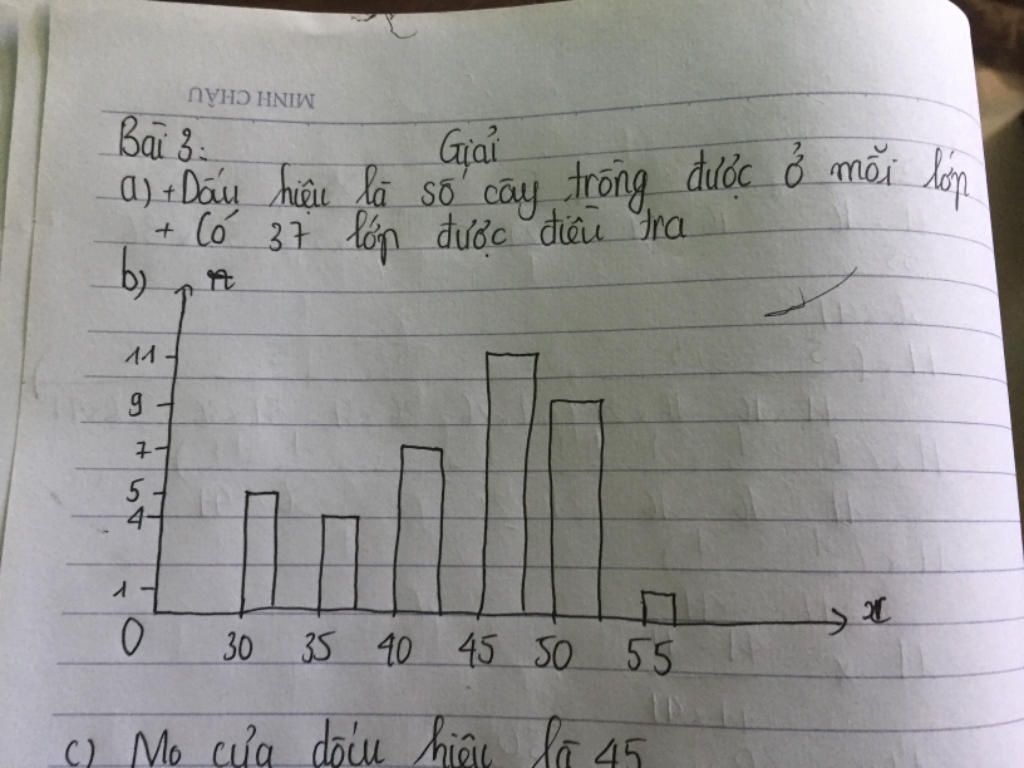 MINH CHÂU
Bài 3: Giải
a) + Dấu hiệu là số cây trồng được ở mỗi lớp
+ Có 37 lớp được điều tra
b) n
11
9
7
5
4
1
0 30 35 40 45 50 55 x
c) Mo của dấu hiệu là 45